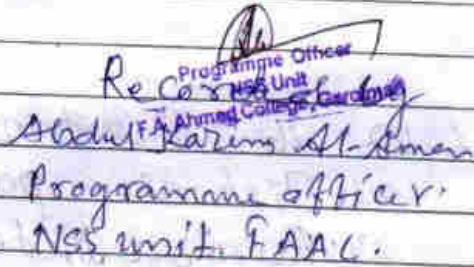 Programme Officer
NSS Unit
F.A. Ahmed College, Garoimari
Recorded by
Abdul Karim Al-Amen
Programme officer.
NSS unit. FAAC.